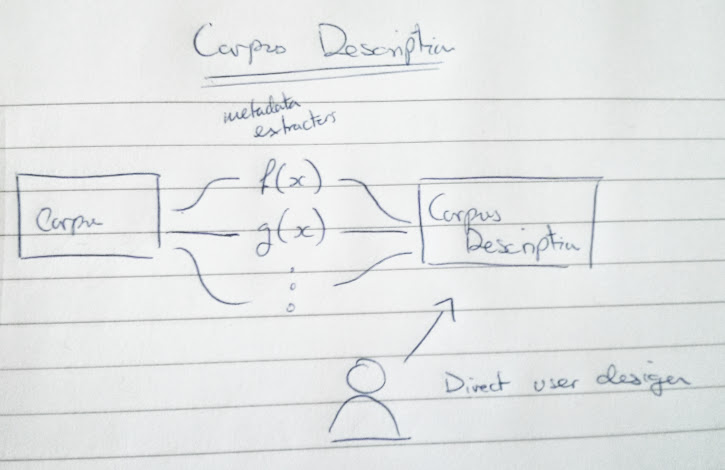 Corpus Description
metadata
extractors
f(x)
Corpus
g(x)
Corpus
Description
Direct user design